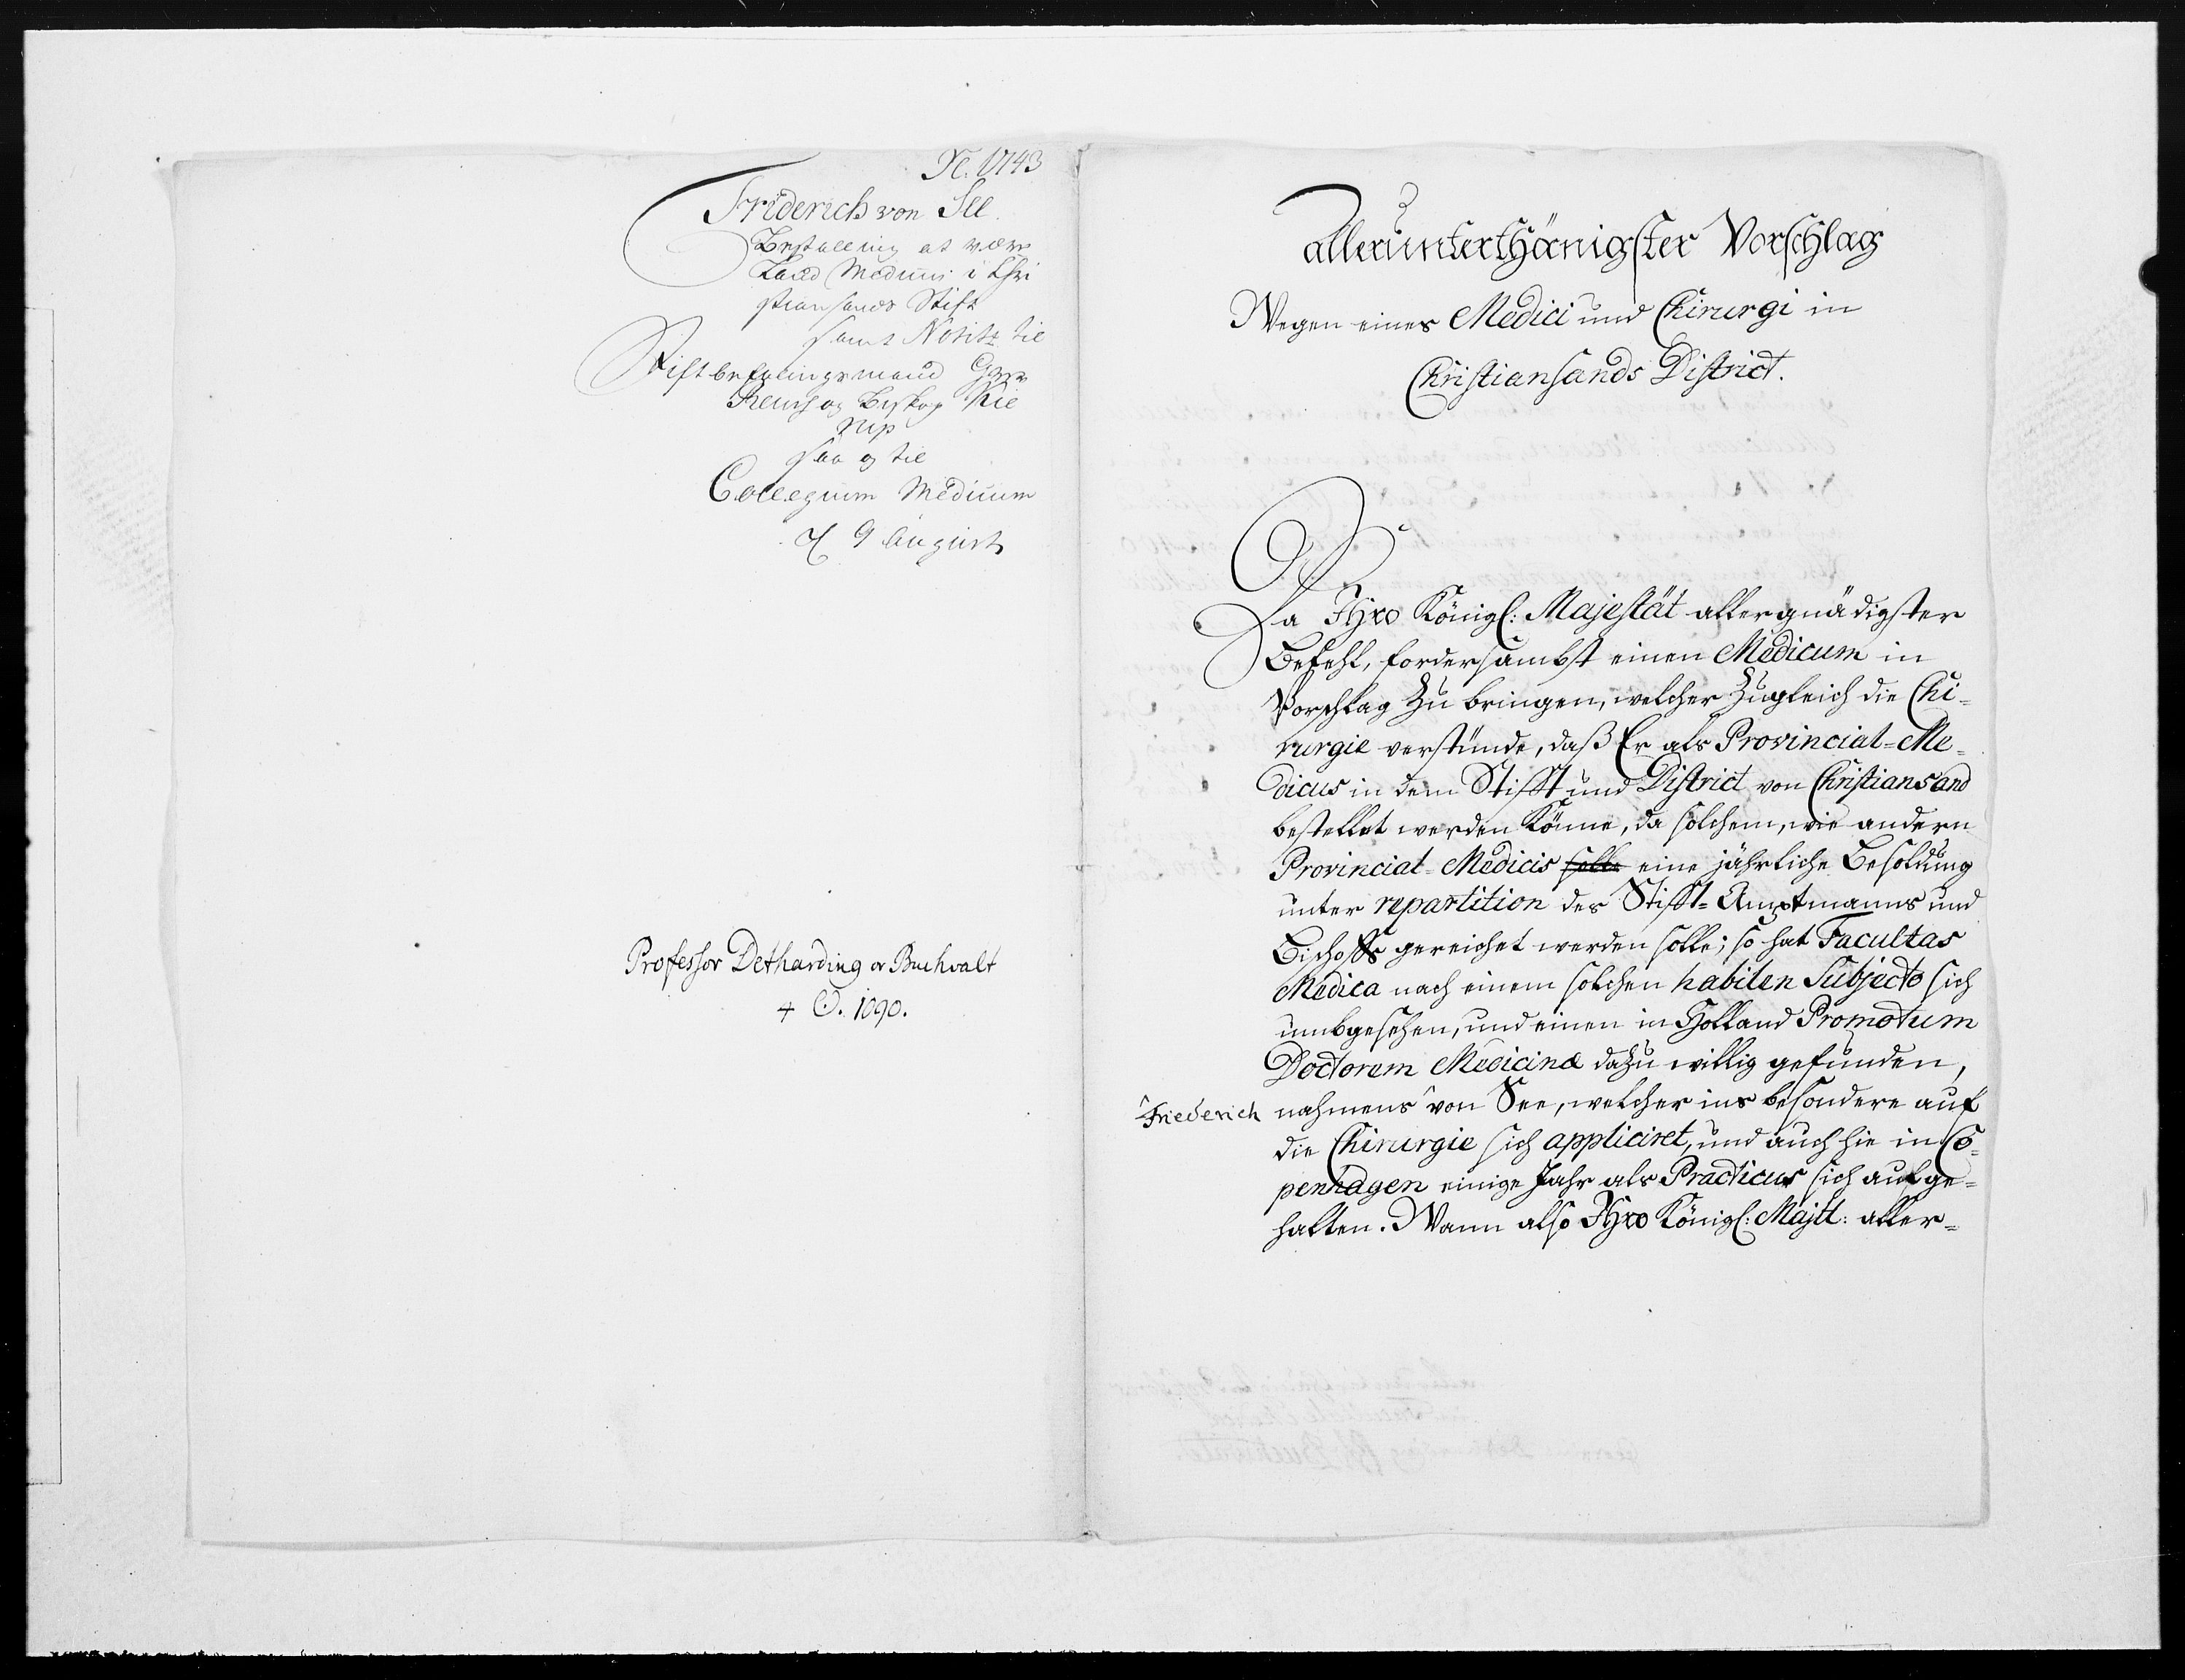 N. 1743
Friderich von See
Bestalling at være
Land Medicus i Chri
stiansands Stift
samt Notitz til
Stiftbefalingsmand
og Biskop Kie
rup
saa og til
Collegium Medicum
9 August
Professor Detharding og Buchvalt
+ O. 1090.
allerunterthänigster Vorschlag
Wegen eines Medici und Chirurgi in
Christiansands District.
Da Ihro Königl: Majestät allergnädigster
Befehl, fordersambst einen Medicum in
Vorschlag zu bringen, welcher zugleich die Chi-
rurgie verstünde, daß Er als Provincial-Me-
dicus in dem Stifft und District von Christiansand
bestellet werden könne, da solchem, wie andern
Provincial-Medicis solle eine jährliche Besoldung
unter repartition des Stifft-Amptmanns und
Bischoffs gereichet werden solle; so hat Facultas
Medica nach einem solchen habilen Subjecto sich
umbgesehen, und einen in Holland Promotum
Doctorem Medicinæ dazu willig gefunden,
Friederich nahmens von See, welcher ins besondere auf
die Chirurgie sich appliciret, und auch hie in Co-
penhagen einige Jahr als Practicus sich aufge-
halten. Wann also Ihro Königl: Majtt: aller-